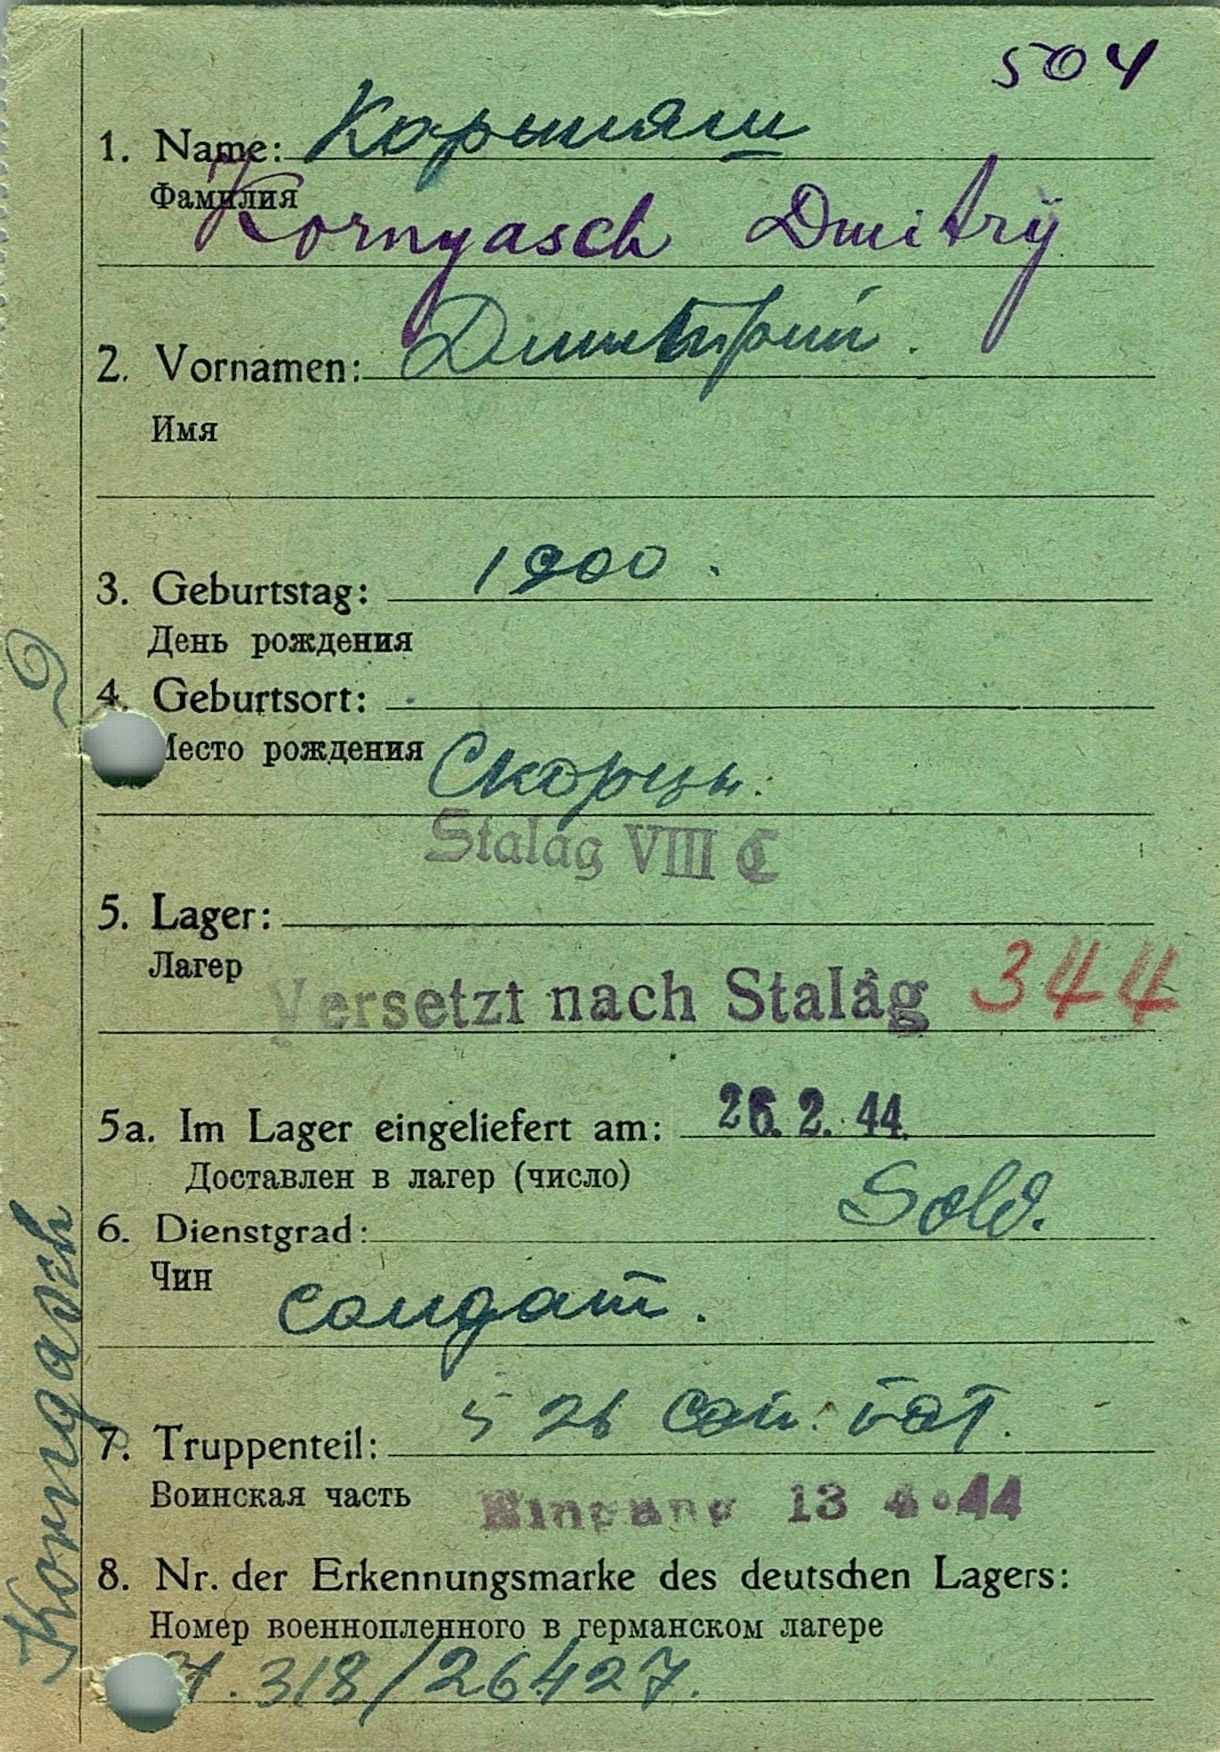 504
1. Name: Корыняш
Фамилия
Kornyasch Dmitrÿ
2. Vornamen: Димитрий.
Имя
3. Geburtstag: 1900.
День рождения
4. Geburtsort:
Место рождения Скорцы.
Stalag VIII C
5. Lager:
Лагер
Versetzt nach Stalag 344
5a. Im Lager eingeliefert am: 26.2.44.
Доставлен в лагер (число)
Sold.
6. Dienstgrad:
Чин
солдат.
7. Truppenteil: 526 сап. бат.
Воинская часть
Eingang 13 4.44
8. Nr. der Erkennungsmarke des deutschen Lagers:
Номер военнопленного в германском лагере
318/26427.
Kornyasch D